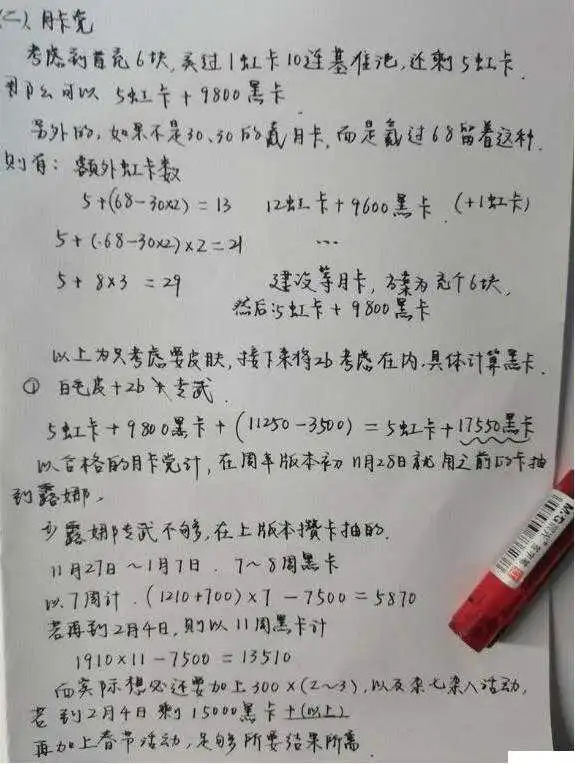 (二) 月卡党
考虑到首充6块,买过1虹卡10连基准池,还剩5虹卡.
那么可以 5虹卡+9800黑卡
另外的,如果不是30、30的氪月卡,而是氪过68留着这种.
则有: 额外虹卡数
5+(68-30×2)=13 12虹卡+9600黑卡 (+1虹卡)
5+(68-30×2)×2=21 ...
5+8×3=29 建议等月卡,方案为充个6块,
然后5虹卡+9800黑卡
以上为只考虑要皮肤,接下来将2b考虑在内.具体计算黑卡.
① 白毛皮+2b 专武.
5虹卡+9800黑卡+(11250-3500)=5虹卡+17550黑卡
以合格的月卡党计,在周年版本初11月28日就用之前的卡抽
到露娜。
露娜专武不够,在上版本攒卡抽的.
11月27日~1月7日. 7~8周黑卡
以7周计.(1210+700)×7-7500=5870
若再到2月4日,则以11周黑卡计
1910×11-7500=13510
而实际想必还要加上300×(2~3),以及杂七杂八活动,
若到2月4日剩15000黑卡+(以上)
再加上春节活动,足够所要结果所需
M&G